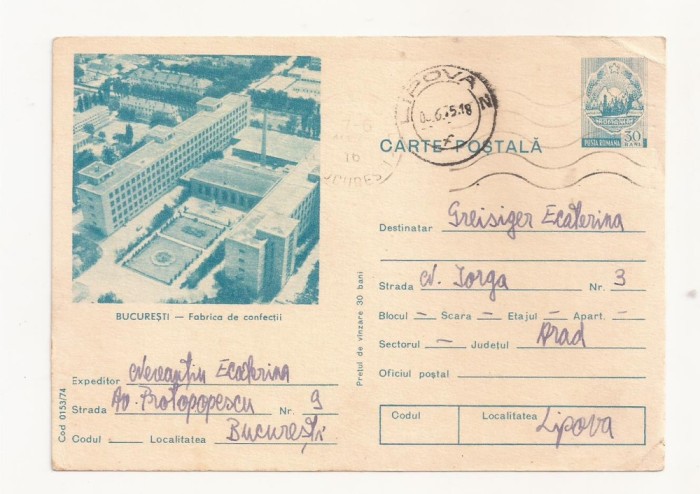 BUCUREȘTI — Fabrica de confecții
Expeditor Ecaterina
Strada Av. Protopopescu Nr. 9
Codul — Localitatea București
Cod 0153/74
LIPOVA
CARTE POȘTALĂ
POSTA ROMANA 30 BANI
Destinatar Greisiger Ecaterina
Strada N. Iorga Nr. 3
Blocul — Scara — Etajul — Apart. —
Sectorul — Județul Arad
Oficiul poștal
Codul Localitatea Lipova
Prețul de vînzare 30 bani